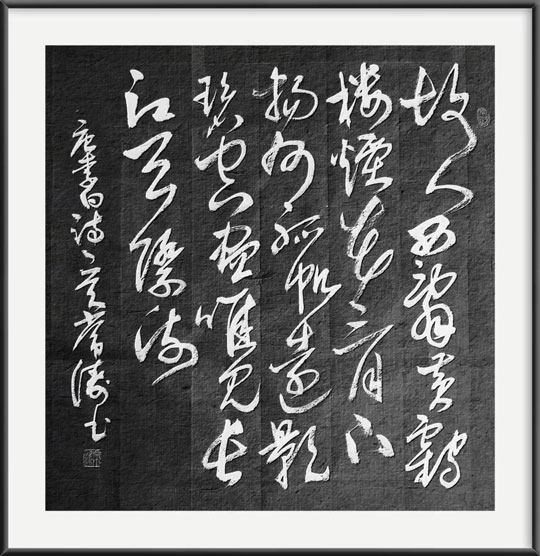 故人西辭黃鶴
樓煙花三月下
揚州孤帆遠影
碧空盡唯見長
江天際流
唐李白詩